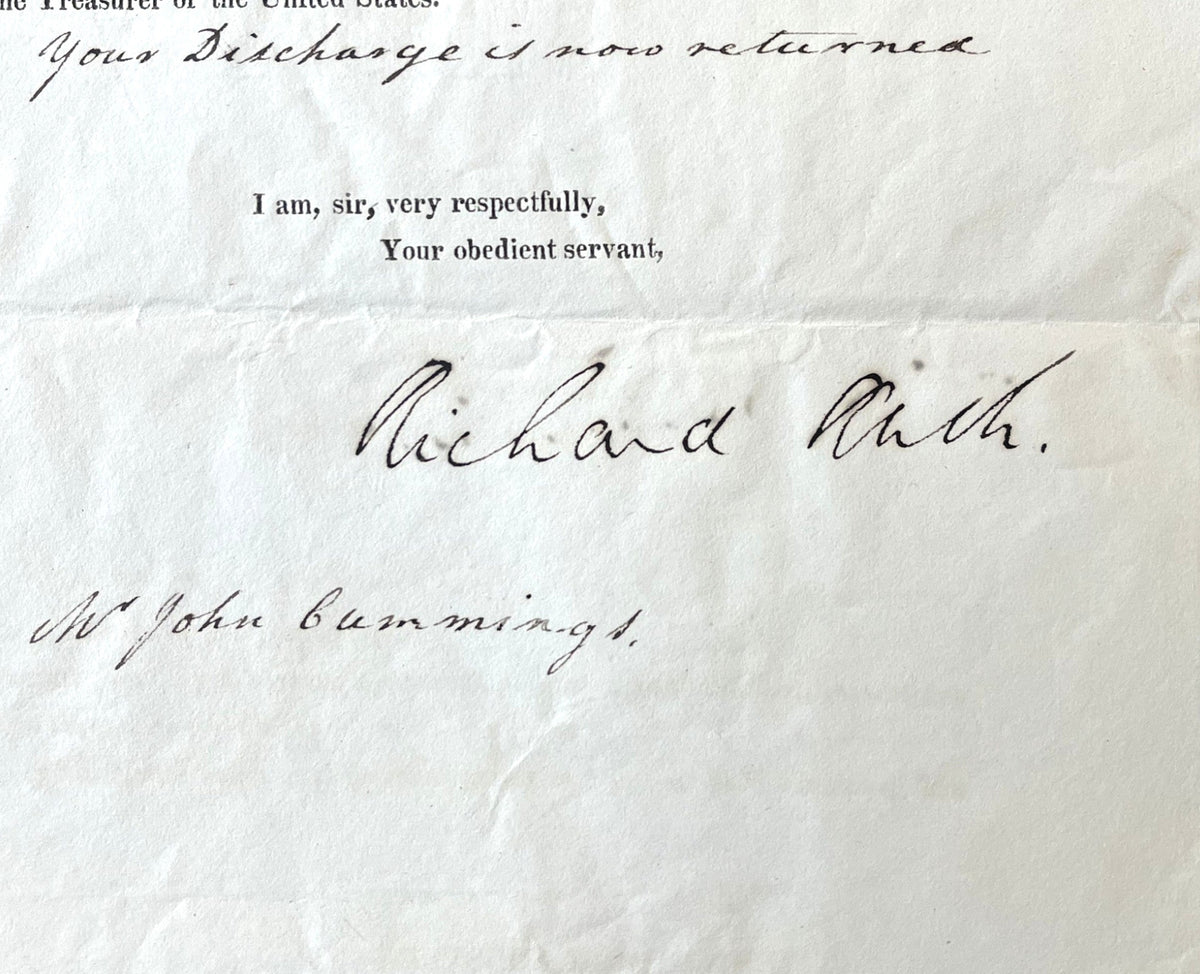 he Treasurer of the United States.
Your Discharge is now returned
I am, sir, very respectfully,
Your obedient servant,
Richard Rush.
Mr John Cummings.